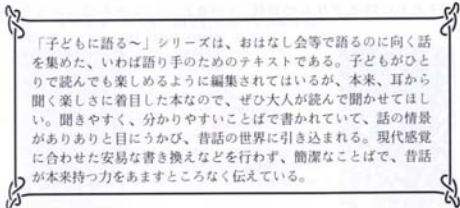 「子どもに語る〜」シリーズは、おはなし会等で語るのに向く話
を集めた、いわば語り手のためのテキストである。子どもがひと
りで読んでも楽しめるように編集されてはいるが、本来、耳から
聞く楽しさに着目した本なので、ぜひ大人が読んで聞かせてほし
い。聞きやすく、分かりやすいことばで書かれていて、話の情景
がありありと目にうかび、昔話の世界に引き込まれる。現代感覚
に合わせた安易な書き換えなどを行わず、簡潔なことばで、昔話
が本来持つ力をあますところなく伝えている。